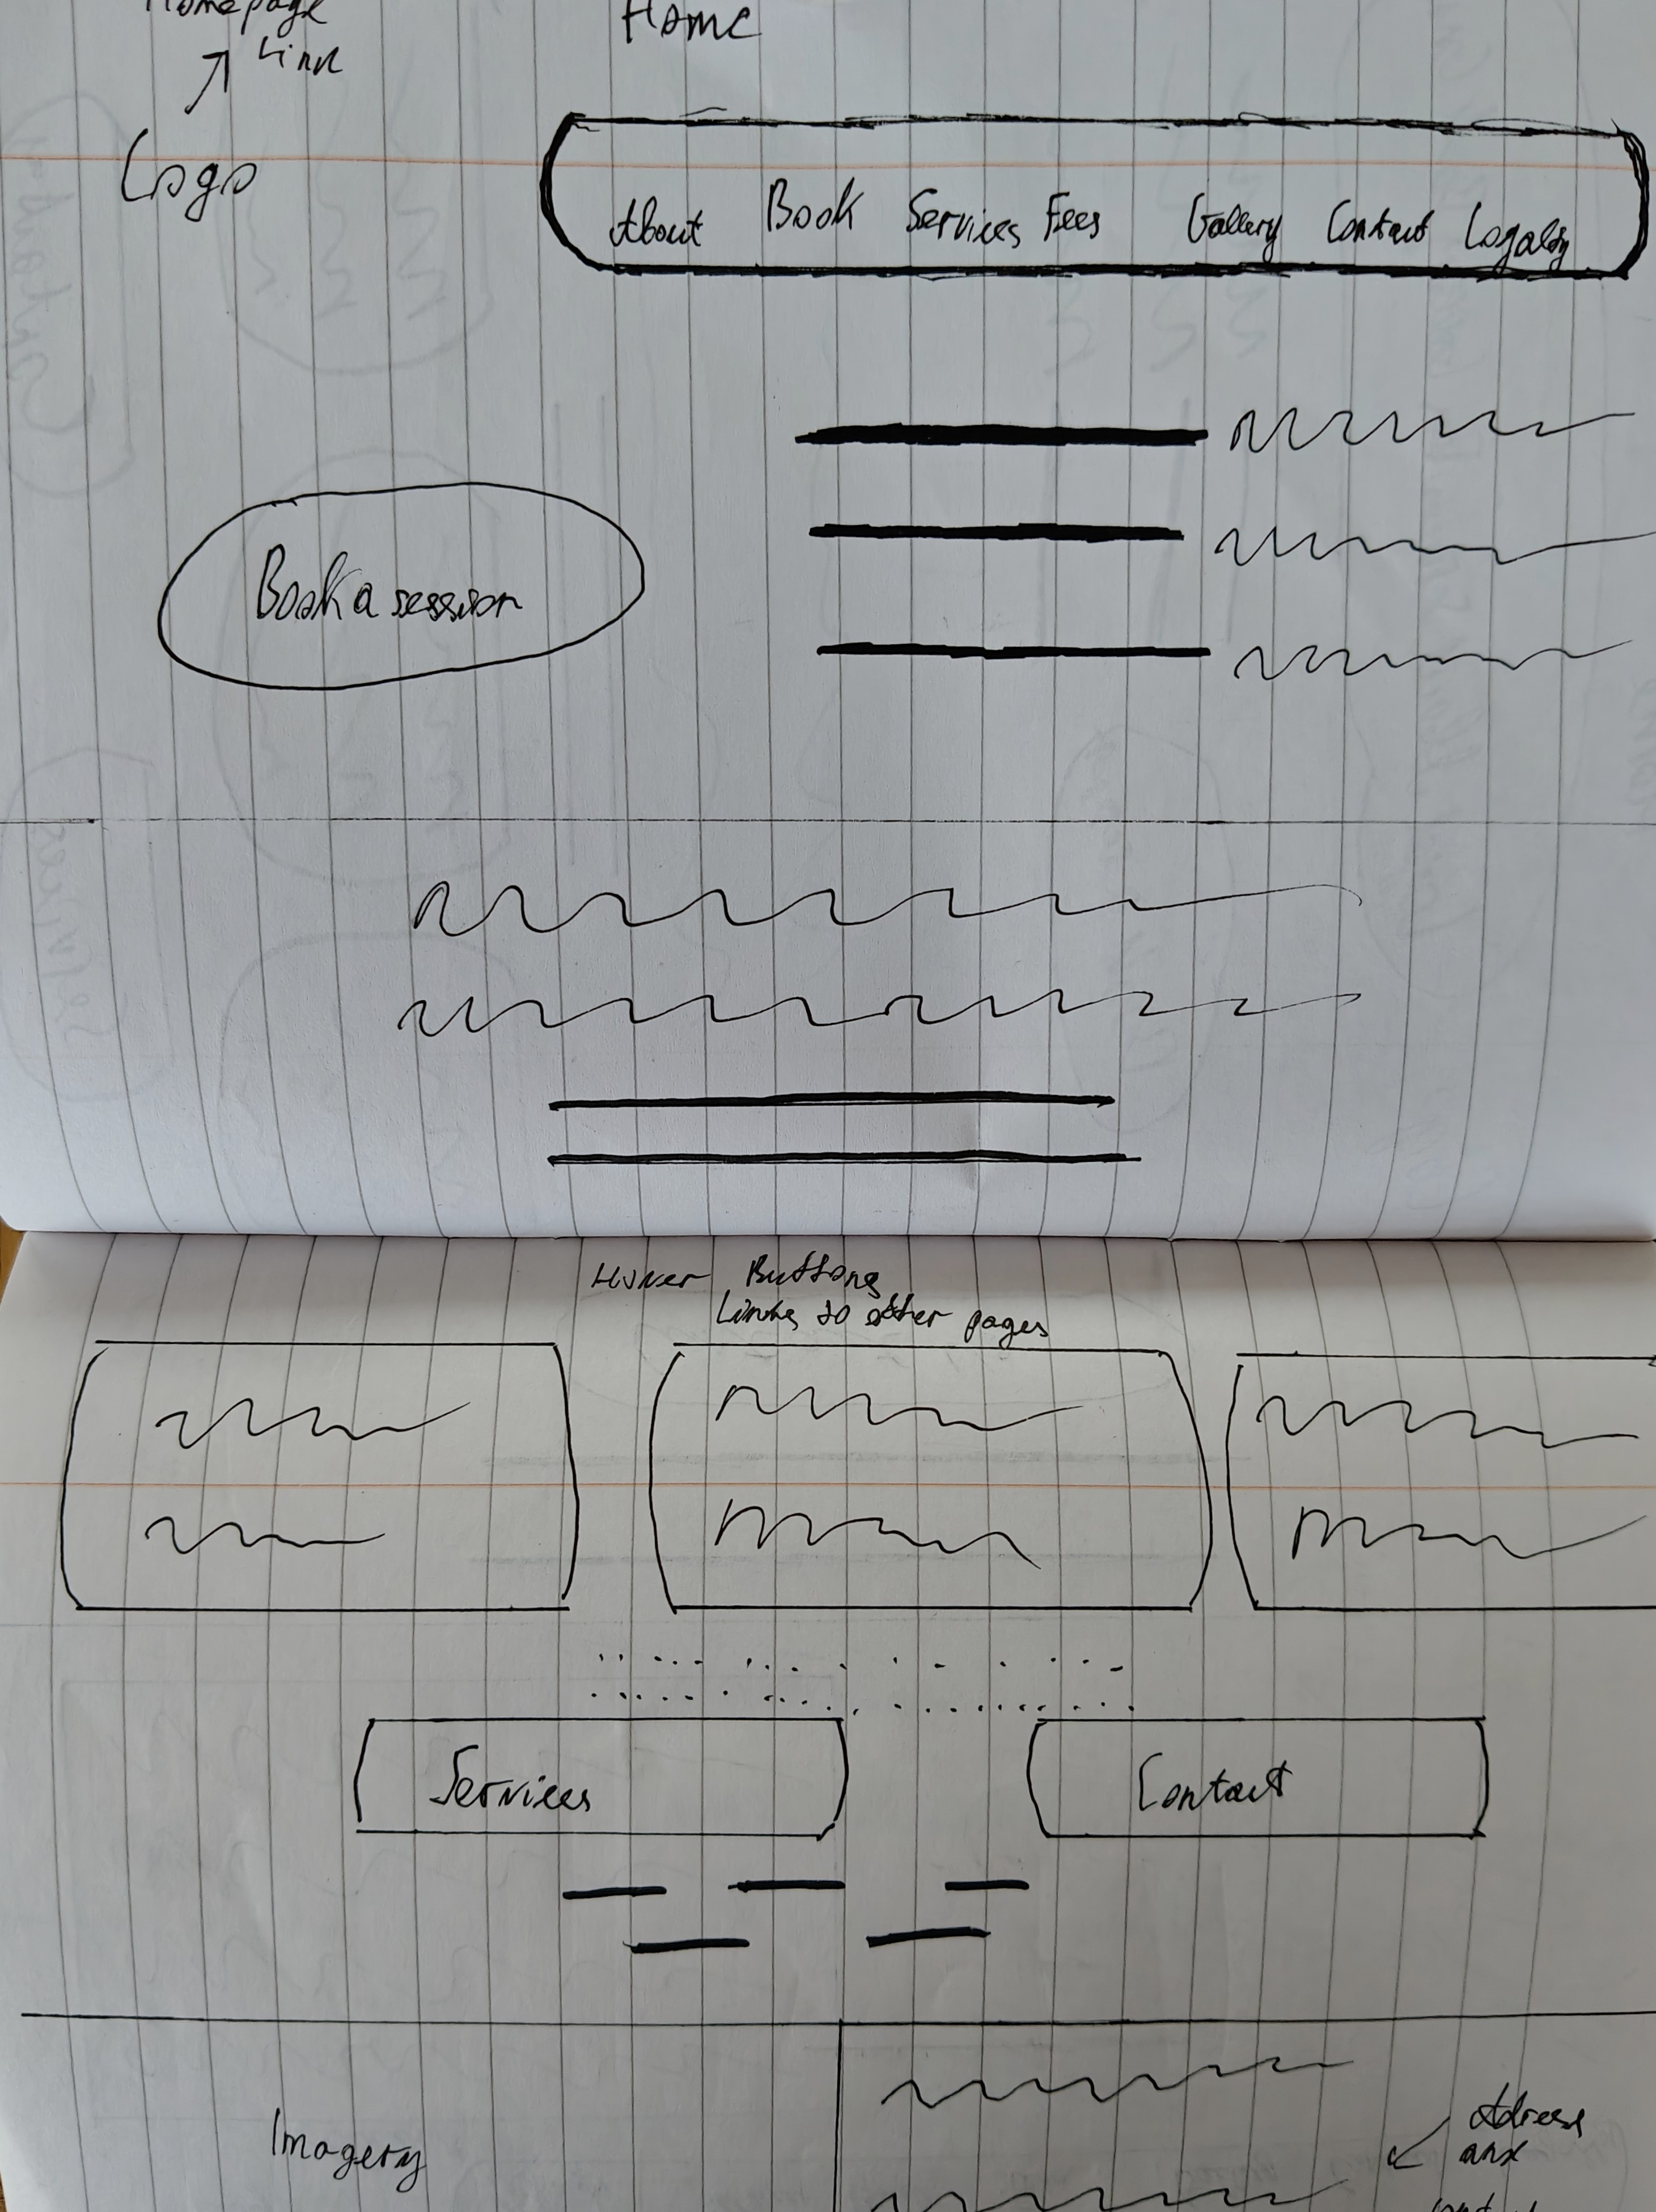 Homepage
Link
Home
Logo
About Book Services Fees Gallery Contact Loyalty
Book a session
Hover Buttons
Links to other pages
Services
Contact
Imagery
Adress
and